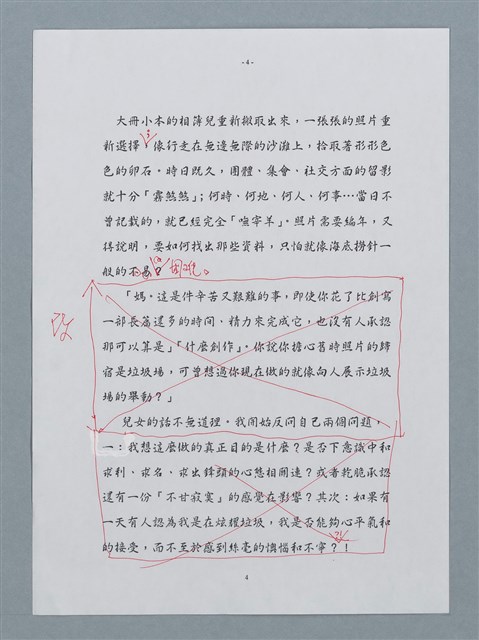 - 4 -
大冊小本的相薄兒重新搬取出來，一張張的照片重
新選擇，像行走在無邊無際的沙灘上，拾取著形形色
色的卵石。時日既久，團體、集會、社交方面的留影
就十分「霧煞煞」；何時、何地、何人、何事…當日不
曾記載的，就已經完全「嘸宰羊」。照片需要編年，又
得說明，要如何找出那些資料，只怕就像海底撈針一
般的不易？
改
「媽。這是件辛苦又艱難的事，即使你花了比創寫
一部長篇還多的時間、精力來完成它，也沒有人承認
那可以算是」「什麼創作」。你說你擔心舊時照片的歸
宿是垃圾場，可曾想過你現在做的就像向人展示垃圾
場的舉動？」
兒女的話不無道理。我開始反問自己兩個問題，
一：我想這麼做的真正目的是什麼？是否下意識中和
求利、求名、求出鋒頭的心態相關連？或者乾脆承認
還有一份「不甘寂寞」的感覺在影響？其次：如果有
一天有人認為我是在炫耀垃圾，我是否能夠心平氣和
的接受，而不至於感到絲毫的懊惱和不寧？！
4